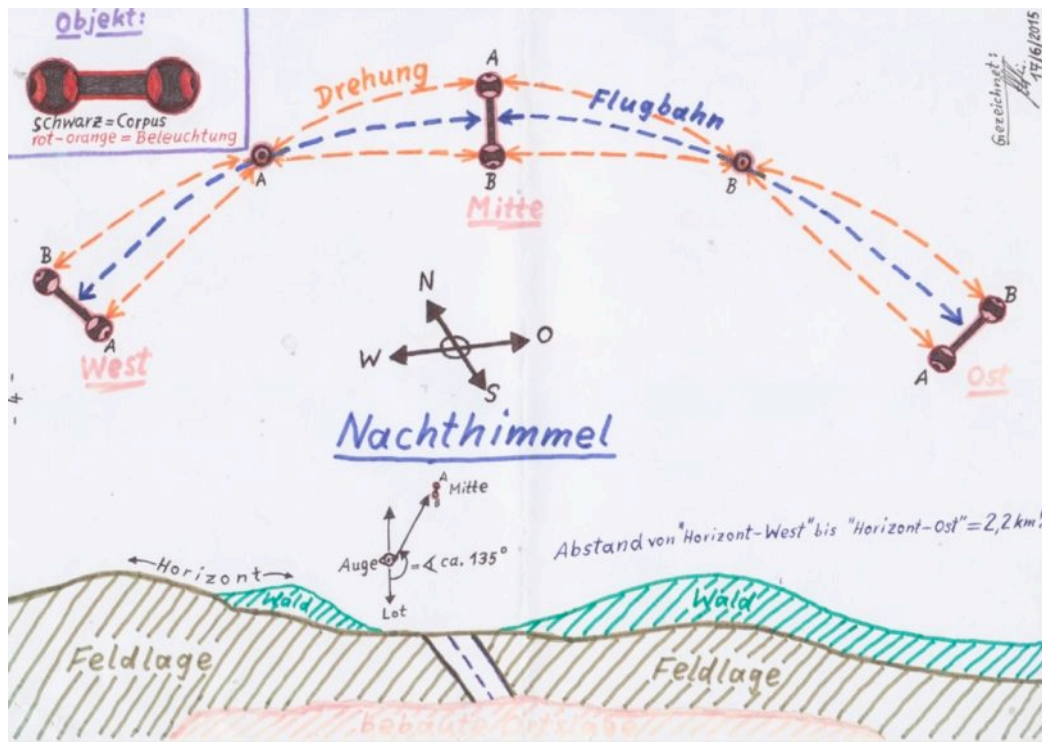 Objekt:
schwarz = Corpus
rot-orange = Beleuchtung
Drehung
A
Flugbahn
Gezeichnet:
17/6/2015
A
B
B
Mitte
B
A
West
B
A
Ost
N
W
O
S
-4-
Nachthimmel
A
Mitte
B
Auge
= ∢ ca. 135°
Lot
Abstand von "Horizont-West" bis "Horizont-Ost" = 2,2 km!
Horizont
Wald
Wald
Feldlage
Feldlage
bebaute Ortslage